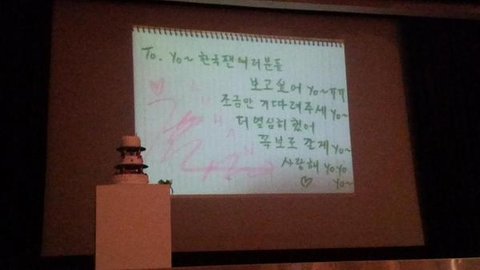 To. yo~ 한국팬 여러분들
보고싶어 yo~ ㅠㅠ
조금만 기다려주세 yo~
더 열심히 했어
꼭 보로 갈게 yo~
사랑해 yoyo
♡ yo~